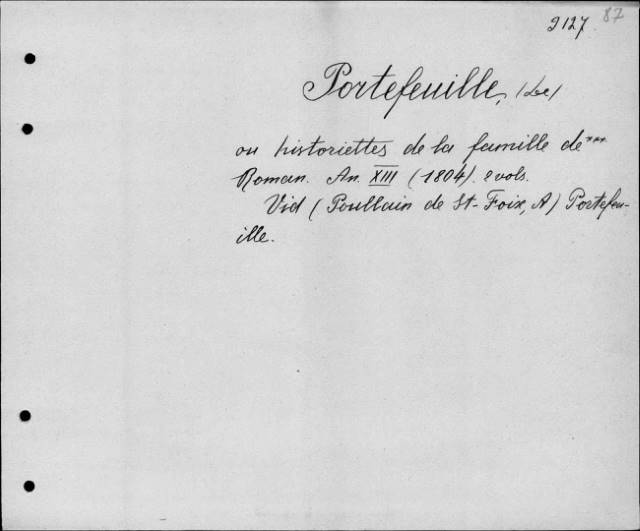 9127 87
Portefeuille, (Le)
ou historiettes de la famille de ***
Roman. An XIII (1804). 2 vols.
Vid (Poullain de St-Foix, A) Portefeu-
ille.